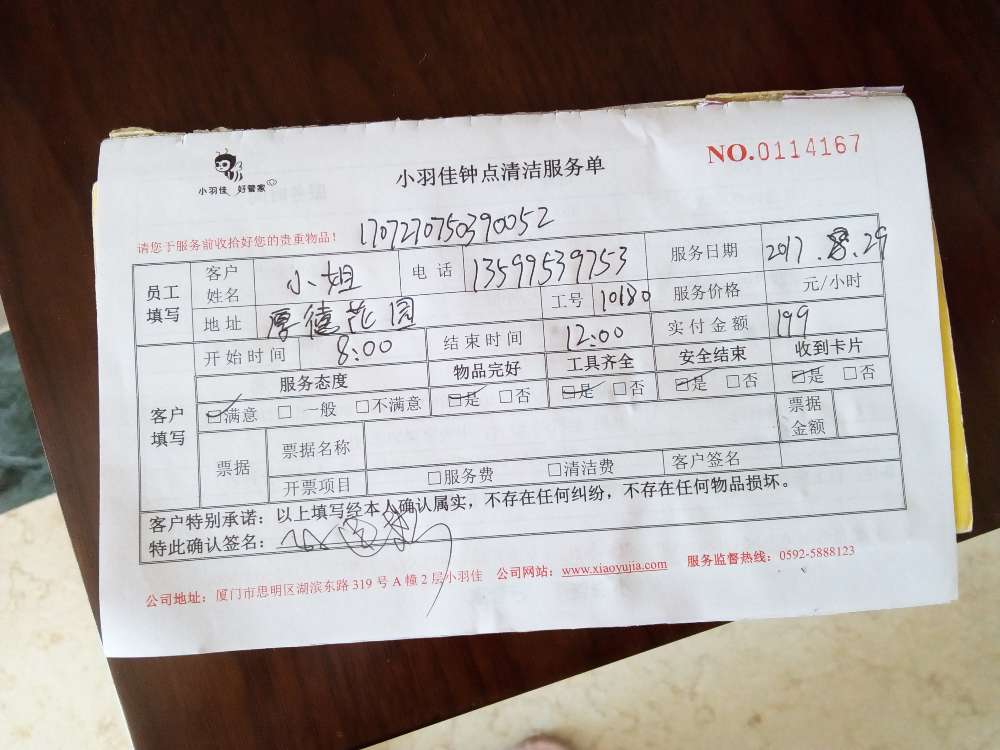 小羽佳 好管家
小羽佳钟点清洁服务单
NO.0114167
请您于服务前收拾好您的贵重物品！
170727075039 0052
员工填写 客户姓名 小姐 电话 13599539753 服务日期 2017.8.29
地址 厚德花园 工号 10180 服务价格 元/小时
客户填写 开始时间 8:00 结束时间 12:00 实付金额 199
服务态度 物品完好 工具齐全 安全结束 收到卡片
☑满意 □ 一般 □不满意 ☑是 □否 ☑是 □否 ☑是 □否 ☑是 □否
票据 票据名称 票据金额
开票项目 □服务费 □清洁费 客户签名
客户特别承诺：以上填写经本人确认属实，不存在任何纠纷，不存在任何物品损坏。
特此确认签名：
公司地址：厦门市思明区湖滨东路319号A幢2层小羽佳 公司网站：www.xiaoyujia.com 服务监督热线：0592-5888123